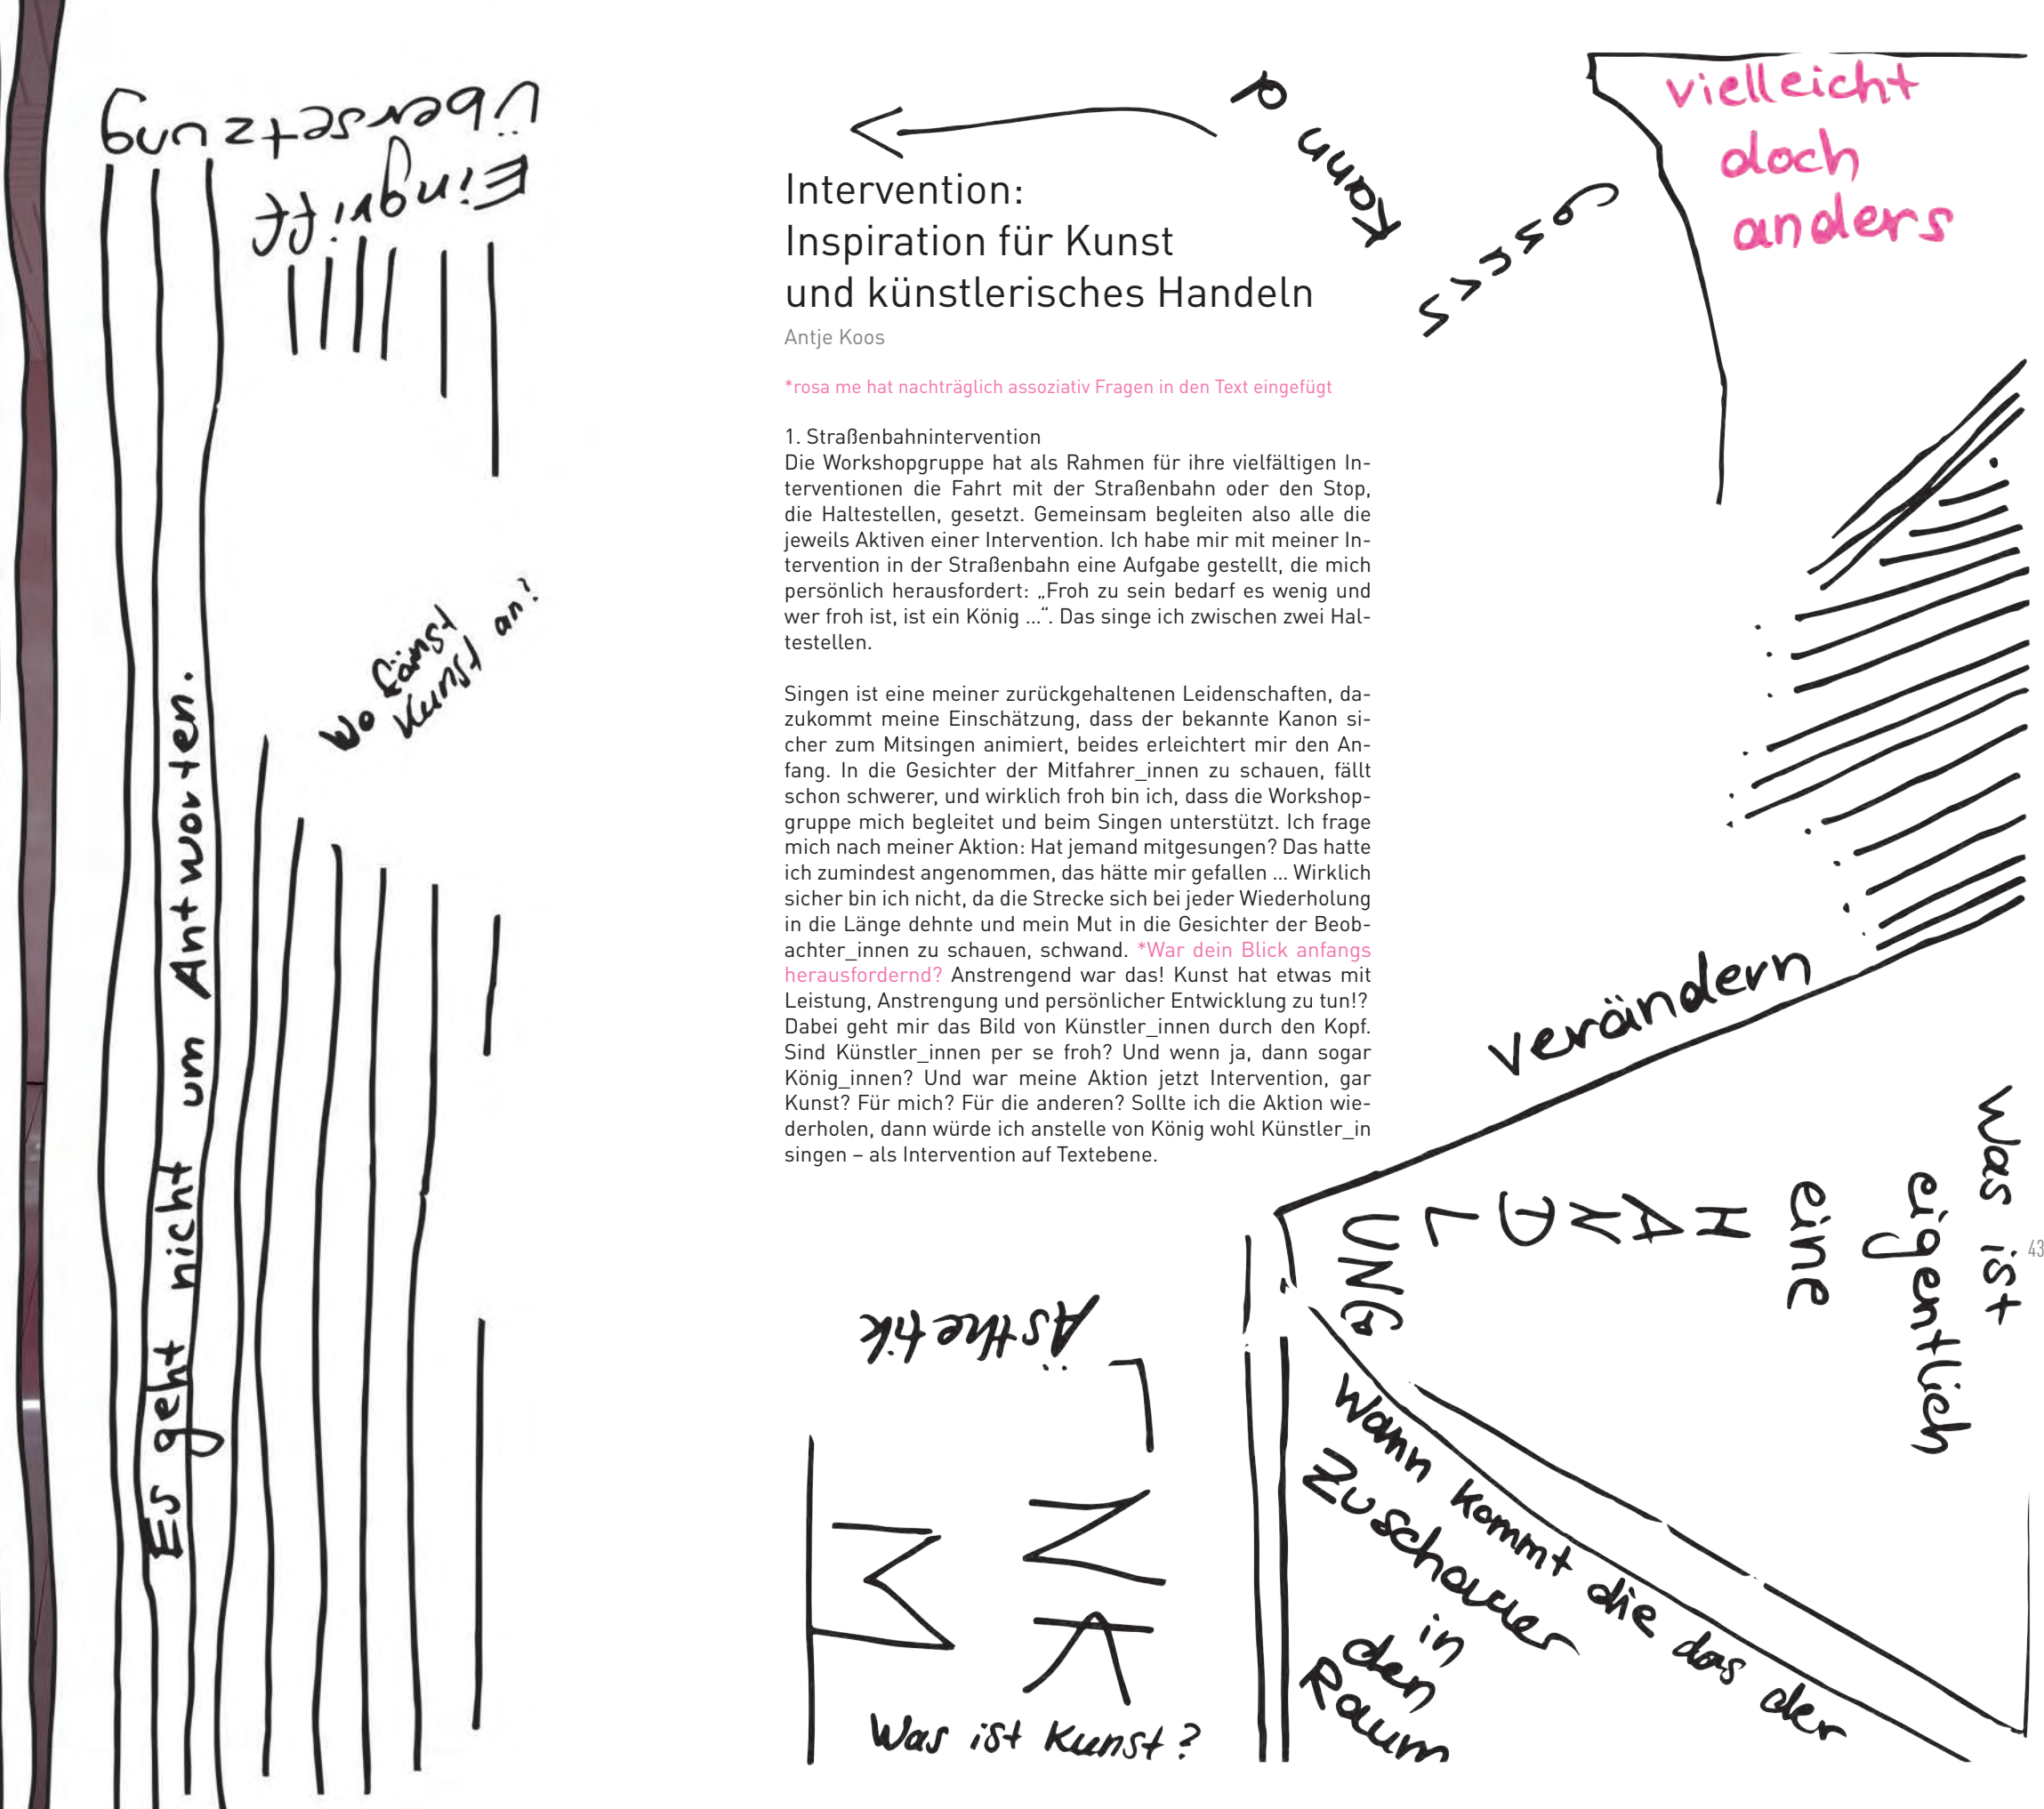 Übersetzung
Eingriff
Es geht nicht um Antworten.
Wo fängt
Kunst an?
Kann
vielleicht
doch
anders
Intervention:
Inspiration für Kunst
und künstlerisches Handeln
Antje Koos
*rosa me hat nachträglich assoziativ Fragen in den Text eingefügt
1. Straßenbahnintervention
Die Workshopgruppe hat als Rahmen für ihre vielfältigen In-
terventionen die Fahrt mit der Straßenbahn oder den Stop,
die Haltestellen, gesetzt. Gemeinsam begleiten also alle die
jeweils Aktiven einer Intervention. Ich habe mir mit meiner In-
tervention in der Straßenbahn eine Aufgabe gestellt, die mich
persönlich herausfordert: „Froh zu sein bedarf es wenig und
wer froh ist, ist ein König ...“. Das singe ich zwischen zwei Hal-
testellen.
Singen ist eine meiner zurückgehaltenen Leidenschaften, da-
zukommt meine Einschätzung, dass der bekannte Kanon si-
cher zum Mitsingen animiert, beides erleichtert mir den An-
fang. In die Gesichter der Mitfahrer_innen zu schauen, fällt
schon schwerer, und wirklich froh bin ich, dass die Workshop-
gruppe mich begleitet und beim Singen unterstützt. Ich frage
mich nach meiner Aktion: Hat jemand mitgesungen? Das hatte
ich zumindest angenommen, das hätte mir gefallen ... Wirklich
sicher bin ich nicht, da die Strecke sich bei jeder Wiederholung
in die Länge dehnte und mein Mut in die Gesichter der Beob-
achter_innen zu schauen, schwand. *War dein Blick anfangs
herausfordernd? Anstrengend war das! Kunst hat etwas mit
Leistung, Anstrengung und persönlicher Entwicklung zu tun!?
Dabei geht mir das Bild von Künstler_innen durch den Kopf.
Sind Künstler_innen per se froh? Und wenn ja, dann sogar
König_innen? Und war meine Aktion jetzt Intervention, gar
Kunst? Für mich? Für die anderen? Sollte ich die Aktion wie-
derholen, dann würde ich anstelle von König wohl Künstler_in
singen – als Intervention auf Textebene.
verändern
was ist
eigentlich
eine
HANDL
UNG
43
Ästhetik
Was ist Kunst?
Wann kommt die das der
Zuschauer
in
den
Raum